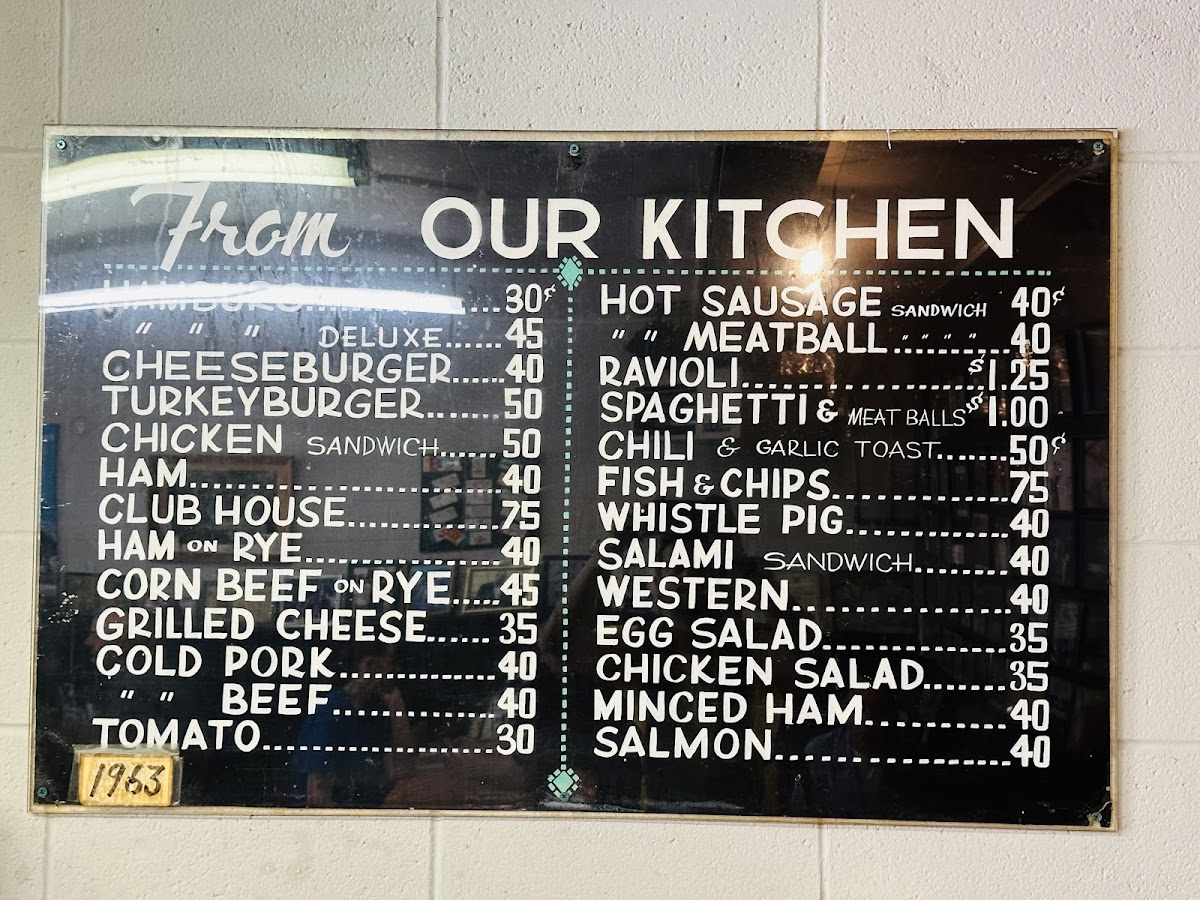 From OUR KITCHEN
HAMBURG..................30¢
" " " DELUXE......45
CHEESEBURGER......40
TURKEYBURGER.......50
CHICKEN SANDWICH......50
HAM..............................40
CLUB HOUSE...............75
HAM ON RYE...................40
CORN BEEF ON RYE.....45
GRILLED CHEESE...... 35
COLD PORK................40
" " BEEF................40
TOMATO.......................30
1963
HOT SAUSAGE SANDWICH 40¢
" " MEATBALL " " " " 40
RAVIOLI.......................$1.25
SPAGHETTI & MEAT BALLS $1.00
CHILI & GARLIC TOAST.......50¢
FISH & CHIPS.................75
WHISTLE PIG................40
SALAMI SANDWICH........40
WESTERN.....................40
EGG SALAD..................35
CHICKEN SALAD.......35
MINCED HAM.............40
SALMON.......................40